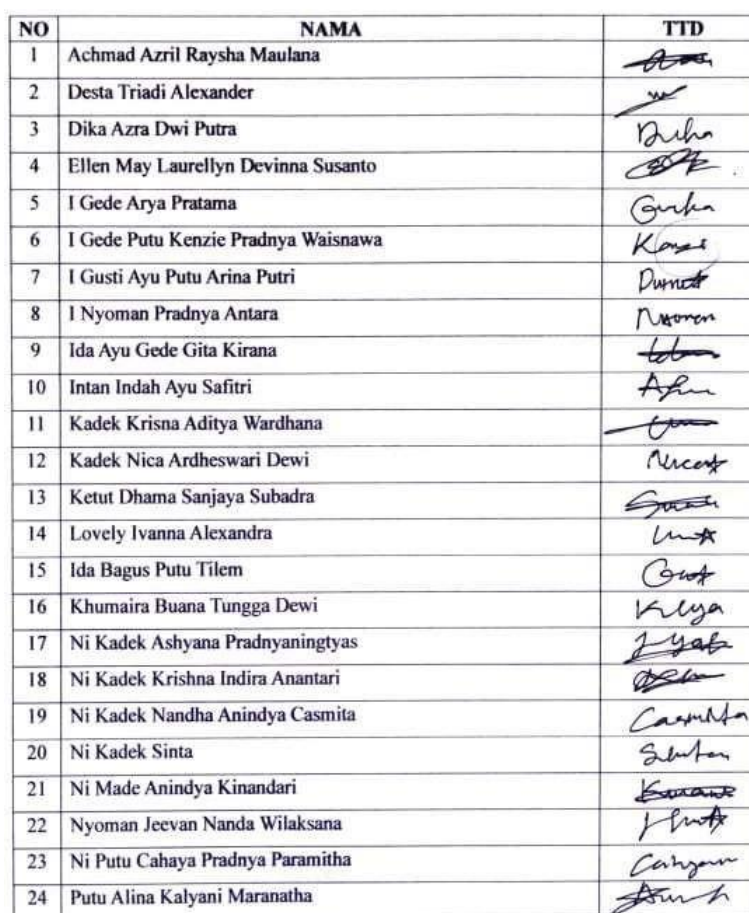 NO NAMA TTD
1 Achmad Azril Raysha Maulana
2 Desta Triadi Alexander
3 Dika Azra Dwi Putra
4 Ellen May Laurellyn Devinna Susanto
5 I Gede Arya Pratama
6 I Gede Putu Kenzie Pradnya Waisnawa
7 I Gusti Ayu Putu Arina Putri
8 I Nyoman Pradnya Antara
9 Ida Ayu Gede Gita Kirana
10 Intan Indah Ayu Safitri
11 Kadek Krisna Aditya Wardhana
12 Kadek Nica Ardheswari Dewi
13 Ketut Dhama Sanjaya Subadra
14 Lovely Ivanna Alexandra
15 Ida Bagus Putu Tilem
16 Khumaira Buana Tungga Dewi
17 Ni Kadek Ashyana Pradnyaningtyas
18 Ni Kadek Krishna Indira Anantari
19 Ni Kadek Nandha Anindya Casmita
20 Ni Kadek Sinta
21 Ni Made Anindya Kinandari
22 Nyoman Jeevan Nanda Wilaksana
23 Ni Putu Cahaya Pradnya Paramitha
24 Putu Alina Kalyani Maranatha